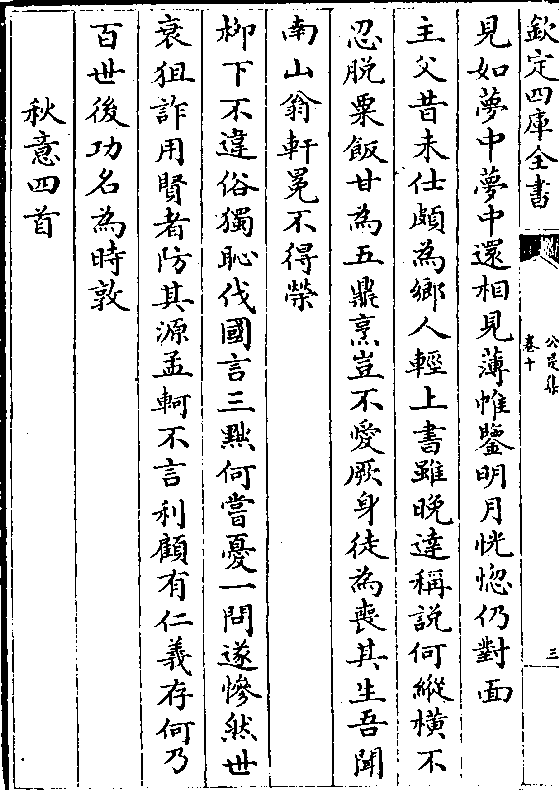 欽定四庫全書
公是集
卷十
三
見如夢中夢中還相見薄帷鑒明月恍惚仍對面
主父昔未仕頗為鄉人輕上書雖晚達稱說何縱橫不
忍脫粟飯甘為五鼎烹豈不愛厥身徒為喪其生吾聞
南山翁軒冕不得榮
柳下不違俗獨恥伐國言三黜何嘗憂一問遂慘然世
衰狙詐用賢者防其源孟軻不言利顧有仁義存何乃
百世後功名為時敦
秋意四首